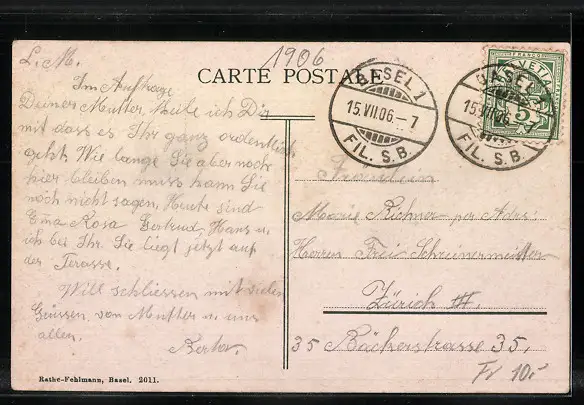 1906
L. M.
CARTE POSTALE
Im Auftrage
Deiner Mutter, theile ich Dir
mit dass es Ihr ganz ordentlich
geht. Wie lange Sie aber noch
hier bleiben muss kann Sie
noch nicht sagen. Heute sind
Rosa Gertrud, Hans u.
ich bei Ihr. Sie liegt jetzt auf
der Terasse.
Will schliessen mit vielen
Grüssen, von Mutter u. uns
allen.
BASEL 1
15.VII.06.–7
FIL. S.B.
BASEL 1
15.VII.06.
FIL. S.B.
FRANCO
HELVETIA
5
Fräulein
Marie Richner per Adr:
Herren Frei Schreinermeister
Zürich III.
35 Bäckerstrasse 35.
Fr 10.-
Rathe-Fehlmann, Basel. 2011.